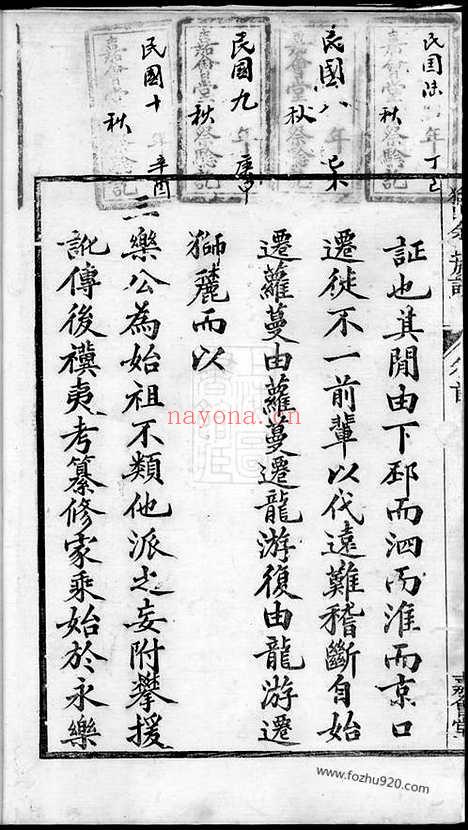 民国 年丁巳
秋
嘉會堂祭驗記
民國八年己未
秋
嘉會堂祭驗記
民國九年庚申
秋
嘉會堂祭驗記
民國十年辛酉
秋
嘉會堂祭驗記
証也其閒由下邳而泗而淮而京口
遷徙不一前輩以代遠難稽斷自始
遷蘿蔓由蘿蔓遷龍游復由龍游遷
獅麓而以
三樂公為始祖不類他派之妄附攀援
訛傳後禩夷考纂修家乘始於永樂
卷首
嘉會堂
nayona.cn
www.fozhu920.com